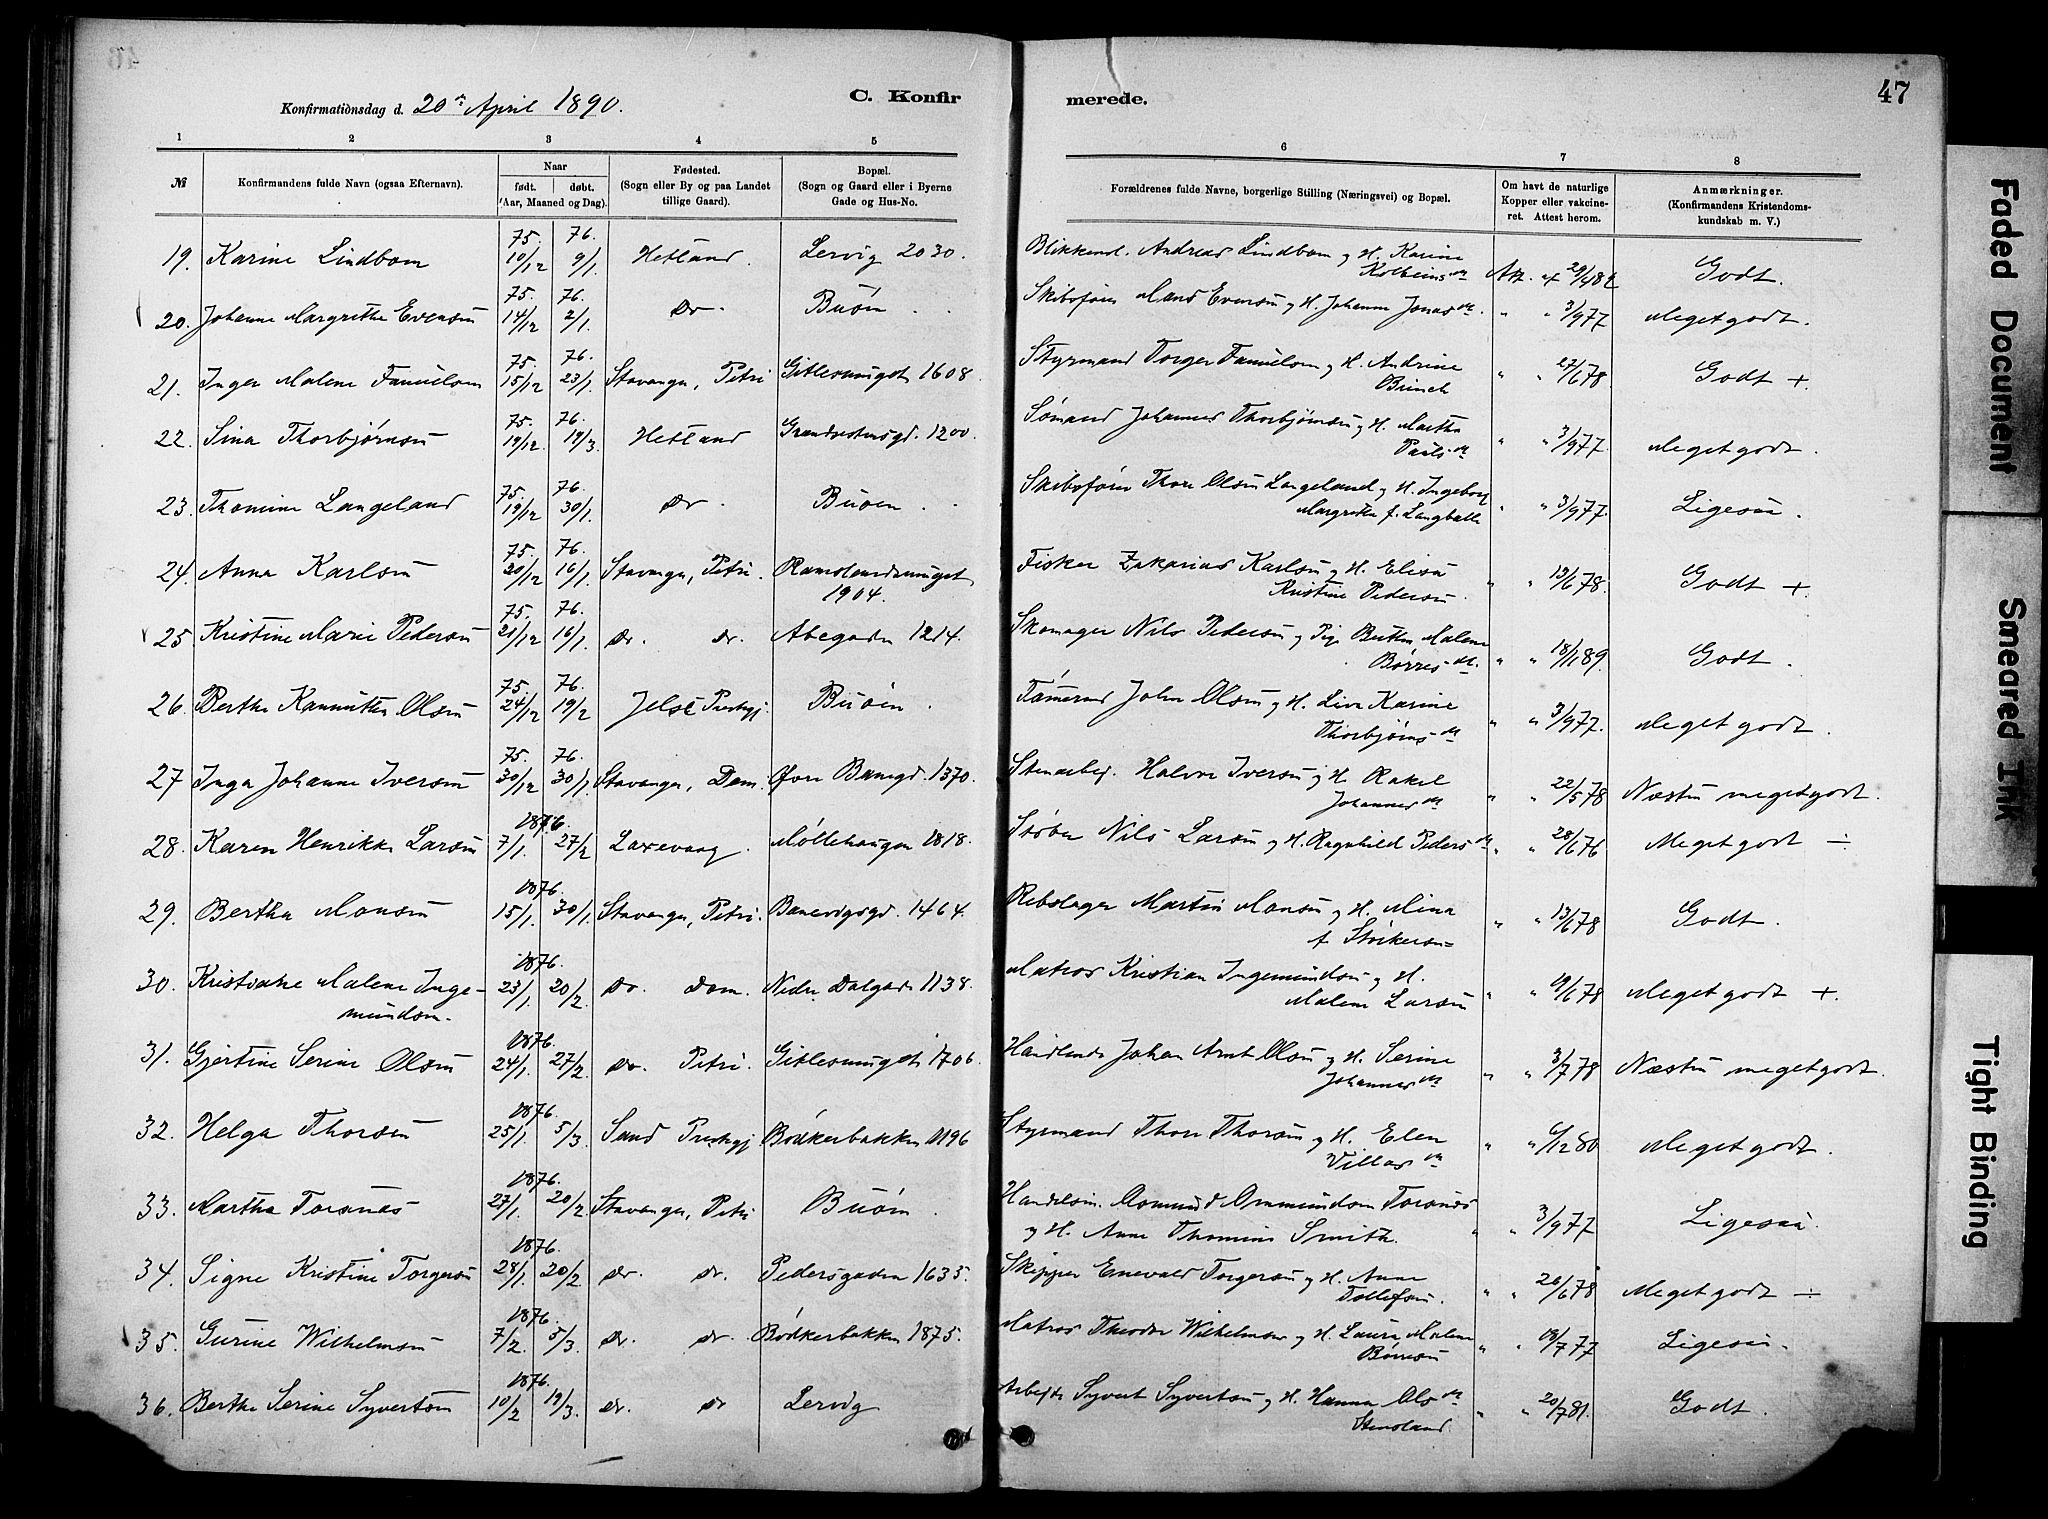 46
Konfirmationsdag d. 20de April 1890.
C. Konfirmerede.
47
1 2 3 4 5 6 7 8
№
Konfirmandens fulde Navn (ogsaa Efternavn).
Naar født. døbt. (Aar, Maaned og Dag).
Fødested. (Sogn eller By og paa Landet tillige Gaard).
Bopæl. (Sogn og Gaard eller i Byerne Gade og Hus-No.
Forældrenes fulde Navne, borgerlige Stilling (Næringsvei) og Bopæl.
Om havt de naturlige Kopper eller vakcineret. Attest herom.
Anmærkninger. (Konfirmandens Kristendomskundskab m. V.)
19. Karine Lindbom 75. 10/12 76. 9/1. Hetland. Lervig 2030. Blikkensl. Andreas Lindbom og H. Karine Kolbeinsdtr Att. af 29/4 82 Godt.
20. Johanne Margrethe Evensen 75. 14/12 76. 2/1. do. Buøen . . Skibsfører Mads Evensen og H. Johanne Jonasdtr. " " 3/9 77 Meget godt.
21. Inger Malene Samuelsen 75. 15/12 76. 23/1. Stavanger, Petri Gitlesmuget 1608. Styrmand Torger Samuelsen og H. Andrine Brinch " " 27/6 78. Godt +.
22. Sina Thorbjørnsen 75. 19/12. 76. 19/3. Hetland 1200. Sømand Johannes Thorbjørnsen og H. Martha Pauls dtr " " 3/9 77. Meget godt.
23. Thomine Langeland 75. 19/12 76. 30/1. do. Buøen . . Skibsfører Thore Olsen Langeland og H. Ingeborg Margrethe f. " " 3/9 77. Ligesaa.
24. Anna Karlsen 75. 20/12 76. 16/1. Stavanger, Petri. Ramslandsmuget 1904. Fisker Zakarias Karlsen og H. Elisa Kristine Pedersen " " 13/6 78. Godt +.
25. Kristine Marie Pedersen 75. 21/12 76. 16/1. do. do. Abegaden 1214. Skomager Nils Pedersen og Pige Berthe Malene Børresdtr. " " 18/1 89. Godt.
26. Berthe Olsen 75. 24/12 76. 19/2 Jelse Prestegj. Buøen. Tømmermd John Olsen og H. Liva Karine Thorbjørnsdtr " " 3/9 77. Meget godt.
27 Inga Johanne Iversen 75. 30/12 76. 30/1. Stavanger, Dom. Øvre Banegd. 1370. Stenarbej. Halvor Iversen og H. Rakel Johannesdtr " " 22/5 78 Næsten meget godt.
28. Karen Henrikke Larsen 1876. 7/1. 27/2 Laxevaag. Møllehaugen 1818. Støber Nils Larsen og H. Ragnhild Pedersdtr " " 28/6 76 Meget godt ÷
29. Bertha Monsen 1876. 15/1. 30/1. Stavanger, Petri. Banevigsgd. 1464. Rebslager Martin Monsen og H. Mina " " 13/6 78 Godt.
30. Kristiane Malene Ingemundsen. 1876. 23/1. 20/2. do. Dom. Nedre Dalgade 1138. Matros Kristian Ingemundsen og H. Malene Larsen " " 19/6 78 Meget godt +.
31. Gjertine Serine Olsen 1876. 24/1. 27/2. do. Petri. Gitlesmuget 1706. Handlende Johan Arnt Olsen og H. Serine Johannesdtr " " 3/7 78 Næsten meget godt.
32. Helga Thorsen 1876. 25/1. 5/3. Sand Prestegj. Bødkerbakken 1196 Styrmand Thore Thorsen og H. Elen Villasdtr " " 6/12 80 Meget godt.
33. Martha Torsnes 1876. 27/1. 20/2 Stavanger, Petri Buøen. Handelsm. Osmund Ommundsen Torsnes og H. Anne Thomine Smith. " " 3/9 77 Ligesaa.
34. Signe Kristine Torgersen 1876. 28/1. 20/2. do. do. Pedersgaden 1635. Skipper Enevald Torgersen og H. Anne Tollefsen. " " 26/6 78 Meget godt ÷
35. Gurine Wilhelmsen 1876. 7/2. 5/3. do. do. Bødkerbakken 1875. Matros Theodor Wilhelmsen og H. Laura Malene Børresen " " 19/7 77 Ligesaa.
36. Berthe Serine Syvertsen 1876. 10/2 19/3. do. do Lervig Arbejder Syvert Syvertsen og H. Hanna Olsdtr Stensland. " " 20/7 81. Godt.
Faded Document
Smeared Ink
Tight Binding